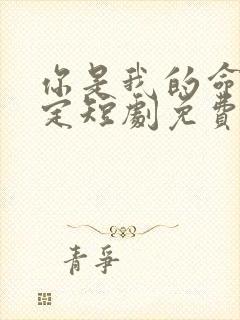 你是我的命
定短劇免費
青爭